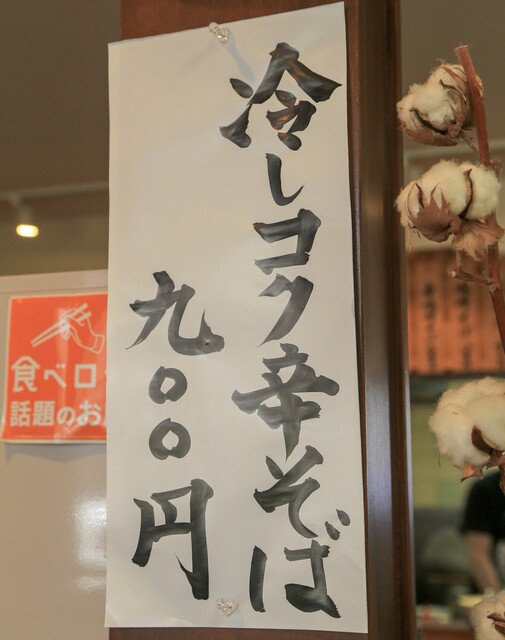 冷しコク辛そば
九〇〇円
食べロ
話題のお